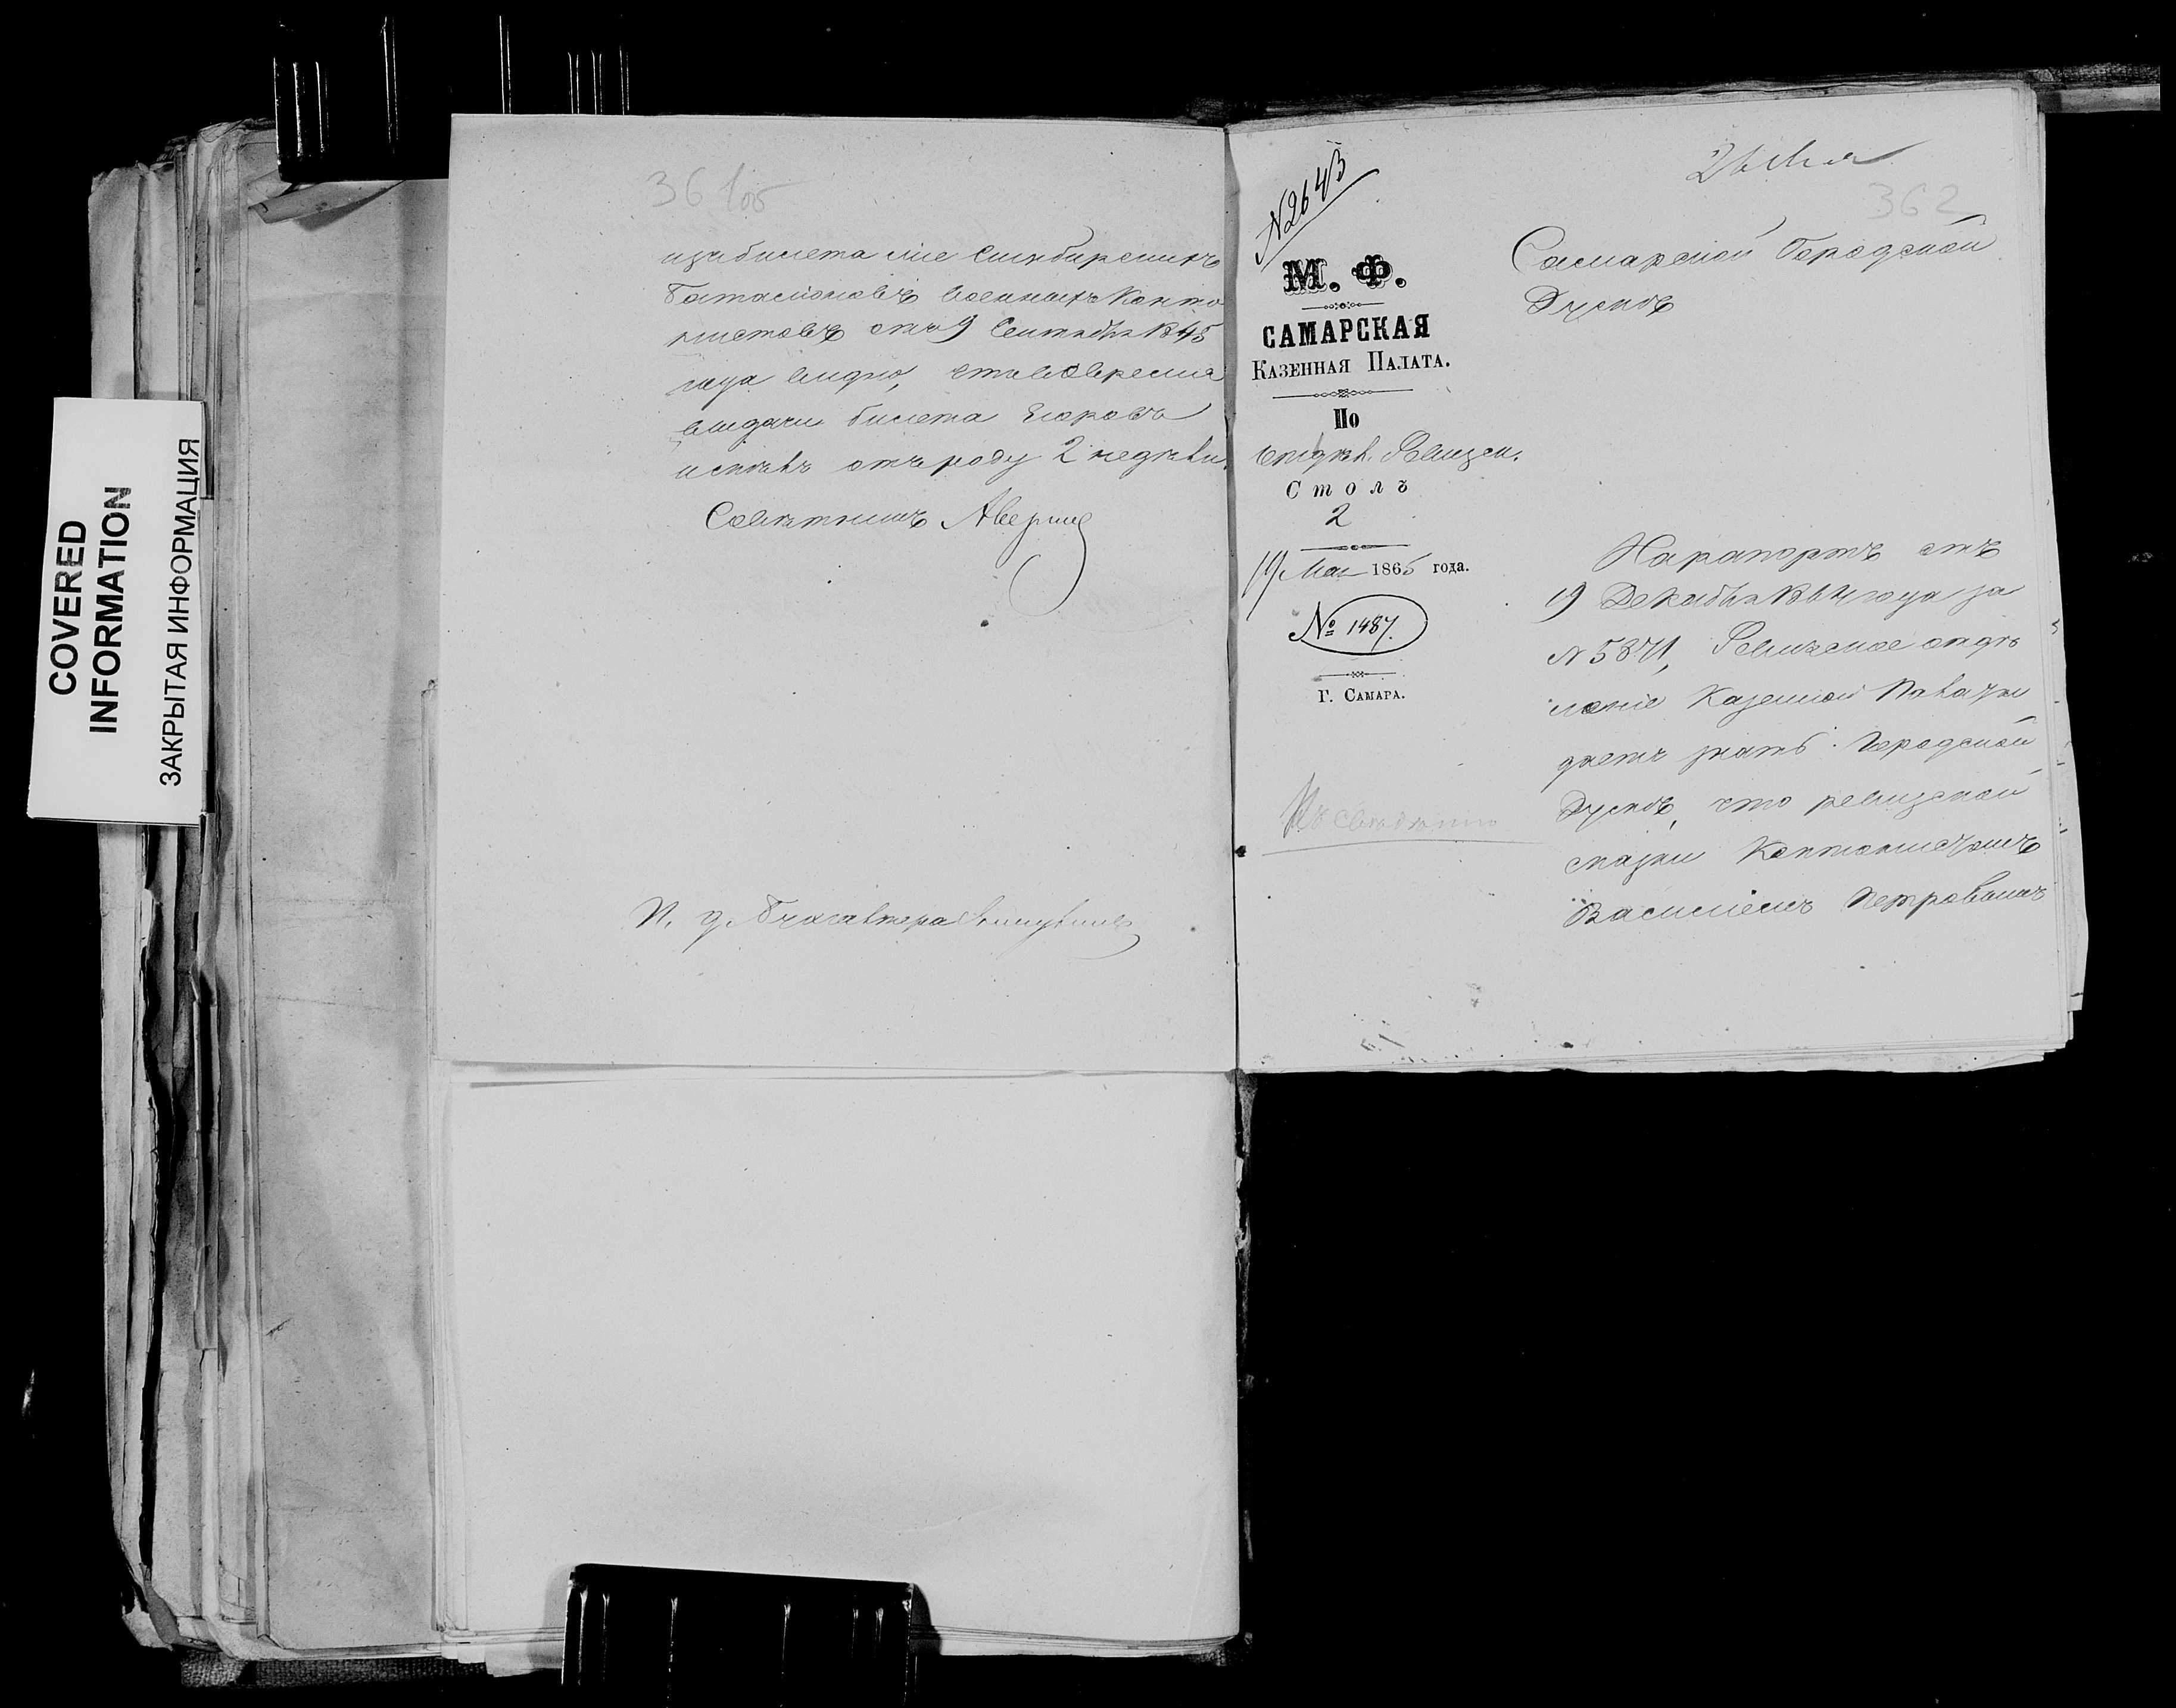 COVERED
INFORMATION
ЗАКРЫТАЯ ИНФОРМАЦИЯ
361об
изъ билета Симбирскихъ
баталіоновъ военныхъ Канто
нистовъ отъ 9 Сентября 1845
года видно, что во время
выдачи билета
отъ роду 2 недѣли.
Совѣтникъ Аверин
И. д. Бухгалтера
№2643
М. Ф.
САМАРСКАЯ
КАЗЕННАЯ ПАЛАТА.
По
отдѣл. Ревизск.
Столъ
2
19 Мая 1865 года.
№ 1487.
Г. САМАРА.
Къ свѣдѣнію
26 Мая
362
Самарской Городской
Думѣ
На рапортъ отъ
19 Декабря 1864 года за
№ 5871, Ревизское отдѣ
леніе Казенной Палаты
даетъ знать Городской
Думѣ, что ревизской
сказки Кантонистомъ
Василіемъ Петровымъ